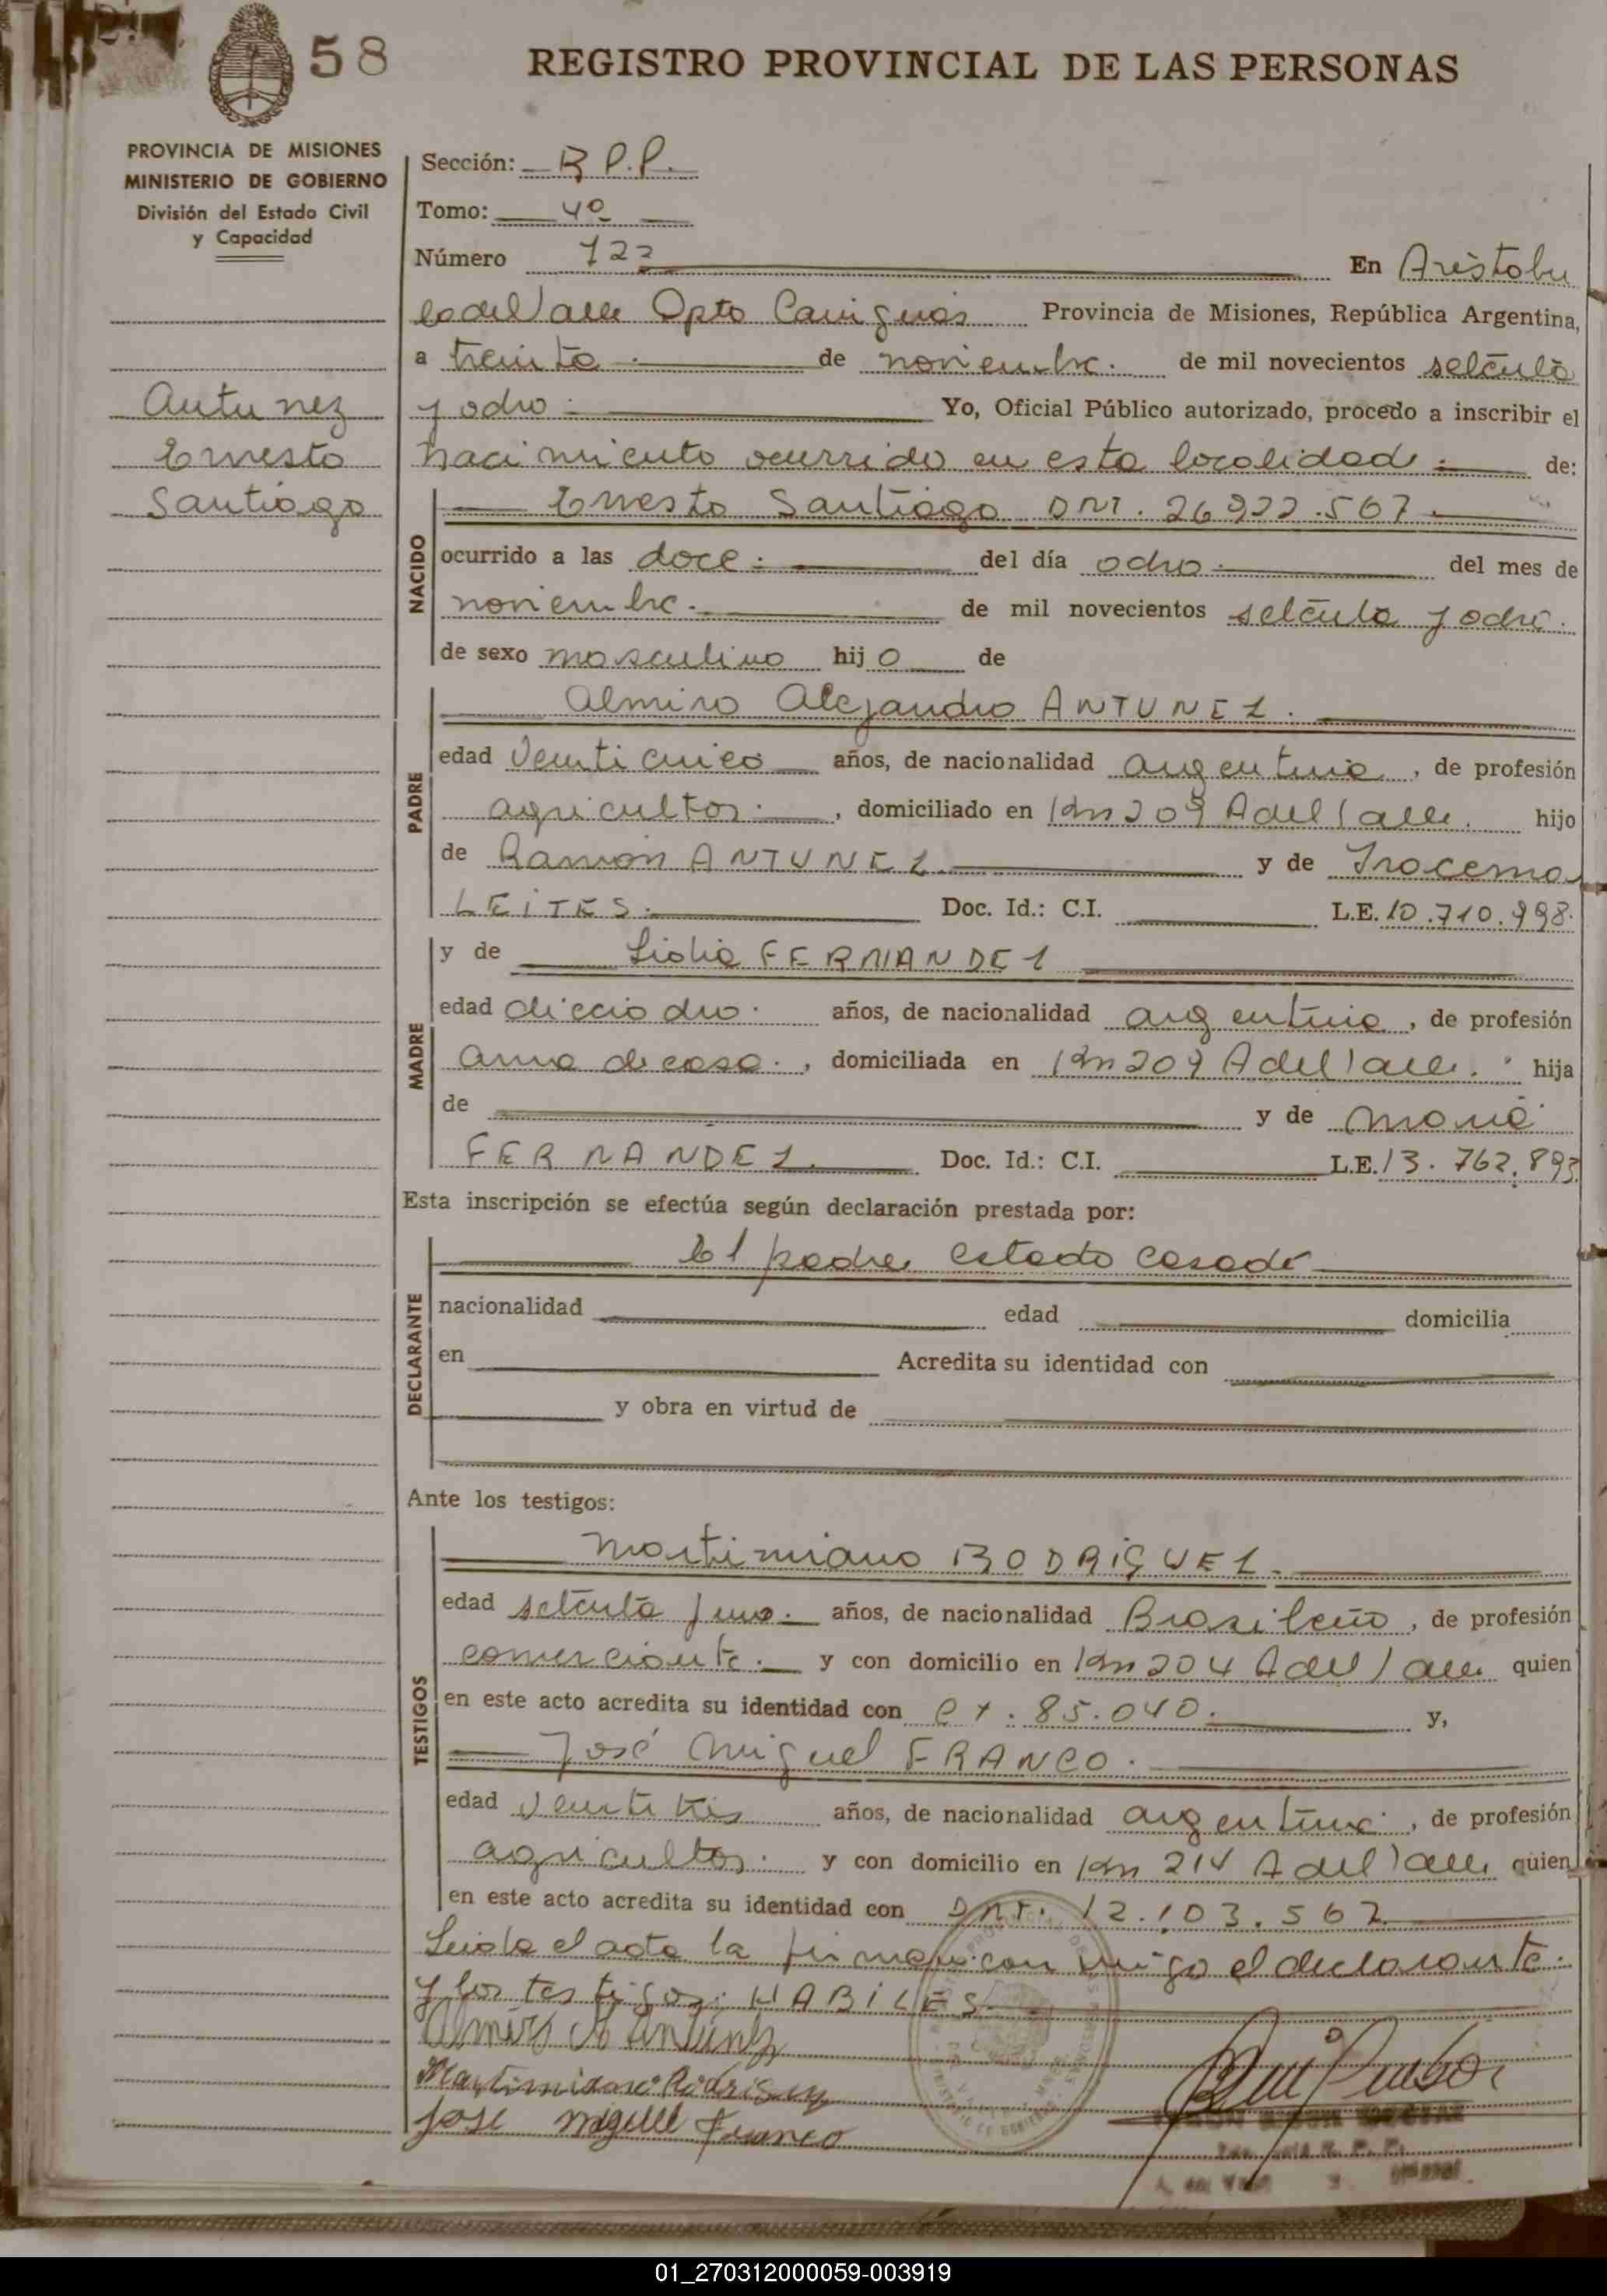 58
REGISTRO PROVINCIAL DE LAS PERSONAS
PROVINCIA DE MISIONES
MINISTERIO DE GOBIERNO
División del Estado Civil
y Capacidad
Antunez
Ernesto
Santiago
Sección: B P.P.
Tomo: 4º
Número 122 En Aristobu
lo del Valle Dpto Cainguás Provincia de Misiones, República Argentina,
a treinta de noviembre. de mil novecientos setenta
y ocho Yo, Oficial Público autorizado, procedo a inscribir el
nacimiento ocurrido en esta localidad de:
NACIDO
Ernesto Santiago DNI. 26922.567
ocurrido a las doce del día ocho del mes de
noviembre. de mil novecientos setenta y ocho.
de sexo masculino hijo de
PADRE
Almiro Alejandro ANTUNEZ.
edad veinticinco años, de nacionalidad argentina, de profesión
agricultor, domiciliado en Km 209 A del Valle. hijo
de Ramón ANTUNEZ y de Iracema
LEITES. Doc. Id.: C.I. L.E. 10.710.998.
MADRE
y de Lidia FERNANDEZ
edad dieciocho. años, de nacionalidad argentina, de profesión
ama de casa., domiciliada en Km 209 A del Valle. hija
de y de María
FERNANDEZ Doc. Id.: C.I. L.E. 13.762.893
Esta inscripción se efectúa según declaración prestada por:
DECLARANTE
El padre estado casado
nacionalidad edad domicilia
en Acredita su identidad con
y obra en virtud de
Ante los testigos:
TESTIGOS
Martimiano RODRIGUEZ.
edad setenta y uno. años, de nacionalidad Brasileño, de profesión
comerciante. y con domicilio en Km 204 A del Valle quien
en este acto acredita su identidad con 85.040. y,
José Miguel FRANCO.
edad veintitres años, de nacionalidad argentina, de profesión
agricultor. y con domicilio en Km 214 A del Valle quien
en este acto acredita su identidad con DNI. 12.103.562
Leida el acta la firman conmigo el declarante
y los testigos. HABILES
Almiro A Antunez
Martimiano Rodriguez
Jose Miguel Franco
01_270312000059-003919